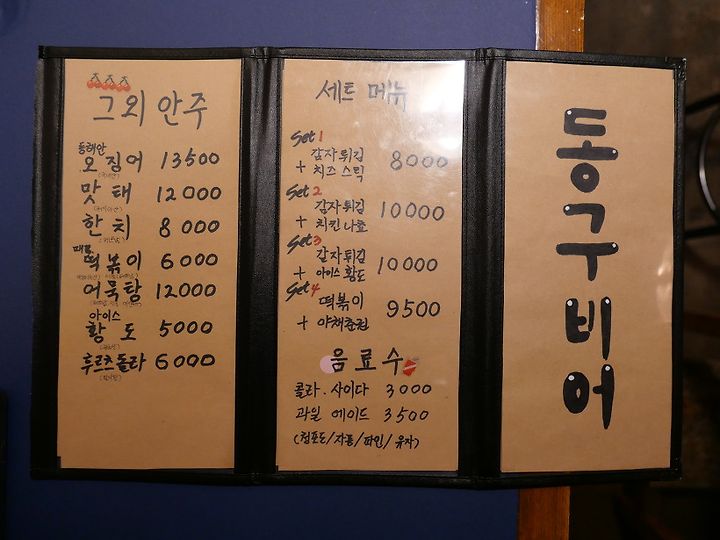 그외 안주
동해안
오징어 13500
맛태 12000
한치 8000
떡볶이 6000
어묵탕 12000
아이스
황도 5000
후르츠돌라 6000
세트 메뉴
Set 1
감자튀김
+ 치즈스틱 8000
Set 2
감자튀김
+ 치킨나쵸 10000
Set 3
감자튀김
+ 아이스황도 10000
Set 4
떡볶이
+ 야채춘권 9500
음료수
콜라. 사이다 3000
과일 에이드 3500
(청포도/자몽/파인/유자)
동구비어